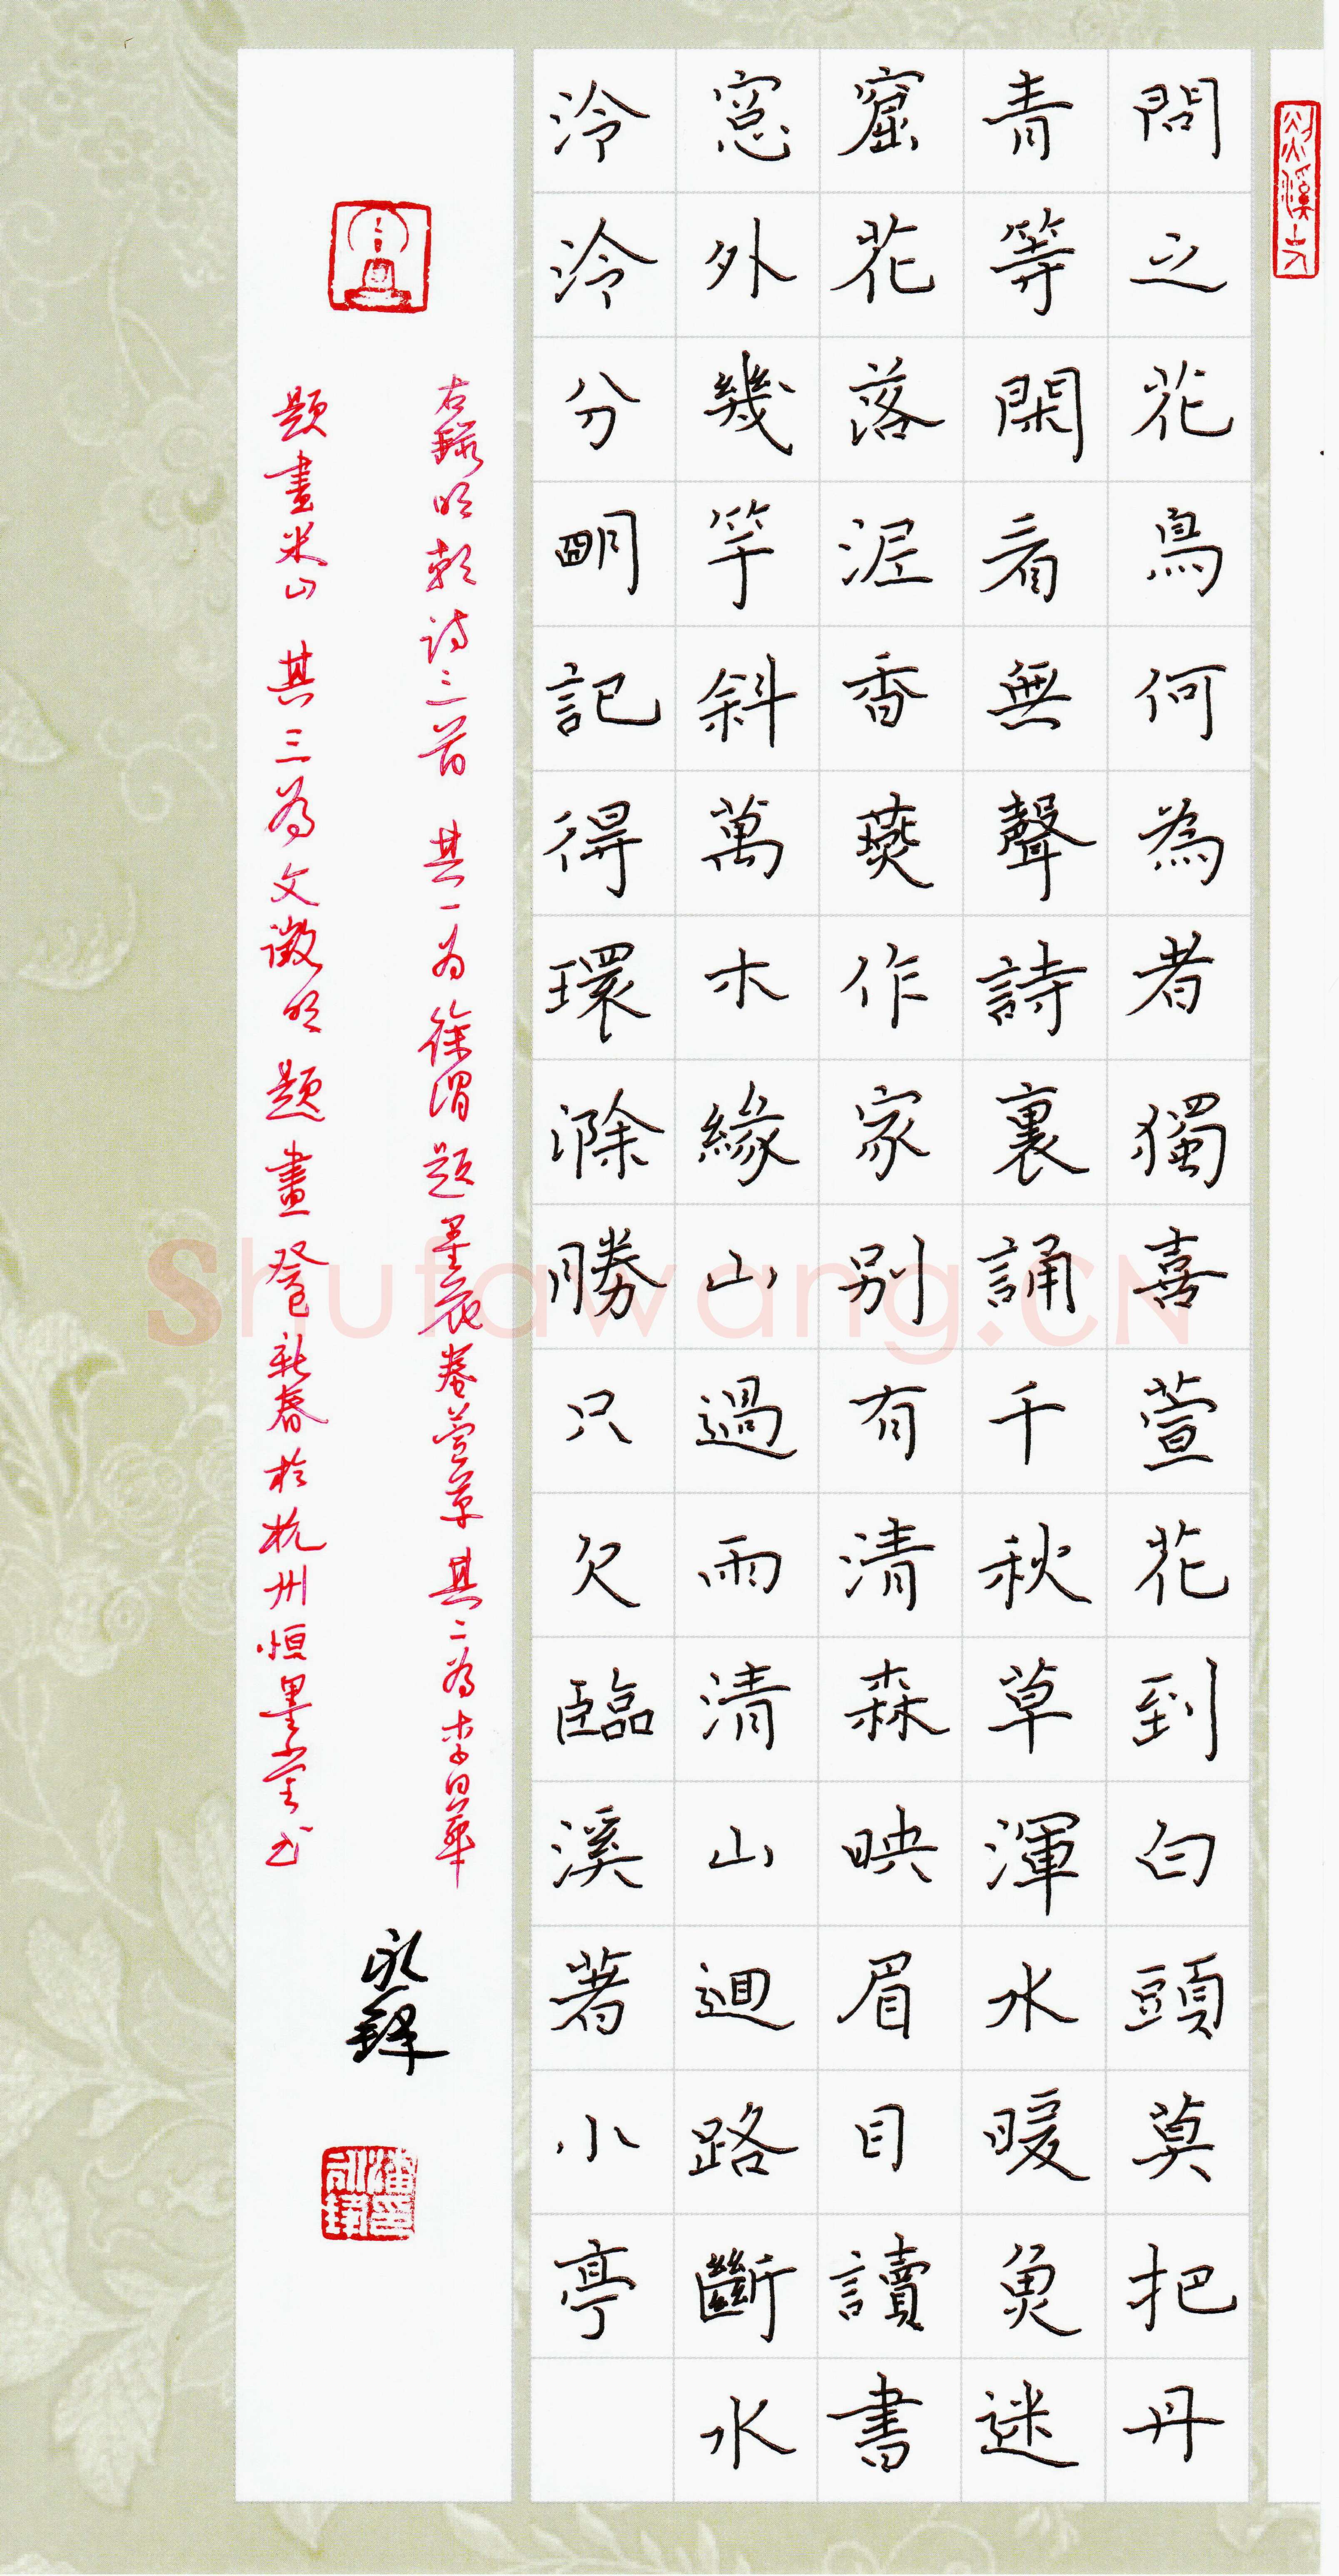 問之花鳥何為者獨喜萱花到白頭莫把丹
青等閑看無聲詩裏誦千秋草渾水暖魚迷
窟花落泥香燕作家別有清森映眉目讀書
窓外幾竿斜萬木緣山過雨清山迴路斷水
泠泠分明記得環滁勝只欠臨溪著小亭
右錄明朝詩三首 其一為徐渭題墨花卷萱草其二為李日華
題畫米山 其三為文徵明題畫 癸巳新春於杭州恒墨堂書
永鋒
Shufawang.CN